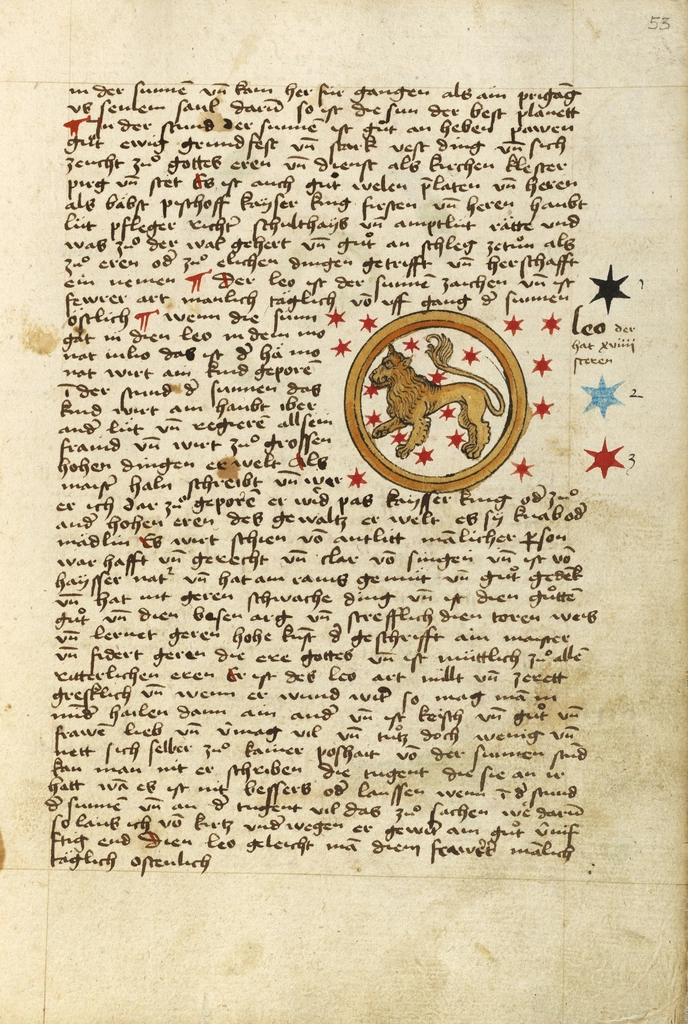 53
in der sunnē vn̄ kam her für gangen als ain prigāg
vs seinem saul darū so ist die sun der best planett
¶ In der stund der sunnen ist gůt an heben pawen
gůt ewig grundfest vn̄ stark vest ding vn̄ sich
zeucht zuͦ gottes eren vn̄ dienst als kirchen kloster
pirg vn̄ stet Es ist auch gůt welen platen vn̄ heren
als babst pyschoff kayser king firsten vn̄ heren haubt
lüt pfleger richter schulthays vn̄ amptlüt rätte vnd
was zuͦ der wal gehert vn̄ gůt an schleg zetůn als
zuͦ eren od zuͦ elichen dingen getrifft vn̄ herschafft
ein nemen ¶ Der leo ist der sunnen zaichen vn̄ ist
fewrer art manlich täglich vō vff gang d sunnen
östlich ¶ wenn die sunn
gat in dien leo in dem mo
nat iulio das ist d hä mo
nat wirt ain kind geporē
ī der stund d sunnen das
kind wirt ain haubt iber
and lüt vn̄ regiere all sein
fraind vn̄ wirt zuͦ grossen
hohen dingen erwelt Als
maister haln schreibt vn̄ wer
er ich dar zuͦ geporē er wīrd pas kaysser king od zuͦ
and hohen eren des gewaltz er welt es sy knab od
mädlin Es wirt schien vō antlitt mālicher pson
war hafft vn̄ gerecht vn̄ clar vō singen vn̄ ist vō
haysser nat vn̄ hat ain rains gemüt vn̄ gůt gedēk
vn̄ hat nit geren schwache ding vn̄ ist dien gůttē
gůt vn̄ dien besen arg vn̄ strefflich dien toren weis
vn̄ lernet geren hohe kūst d geschrifft ain maister
vn̄ fidert geren die ere gottes vn̄ ist müttlich zuͦ allē
ritterlichen eren Er ist des leo art milt vn̄ zerett
gresklich vn̄ wenn er wund wirt so mag mā in
mīd hailen dann ain and vn̄ ist keisch vn̄ gůt vn̄
frawē lieb vn̄ v̄mag vil vn̄ tůtz doch wenig vn̄
nett sich selber zuͦ kainer poshait vō der sunnen stūd
kan man nit er schriben die tugent die sie an ir
hatt wā es ist nit bessers od laussen wenn ī d stund
d sunnen vn̄ an d tugent vil das zuͦ sachen wē darū
so laus ich vō kirtz vnd wegen er gewīt ain gůt v̄nif
ftig end Dien leo geleicht mā diem fewrē mālich
täglich ostenlich
1
leo der
hat xviiii
steren
2
3